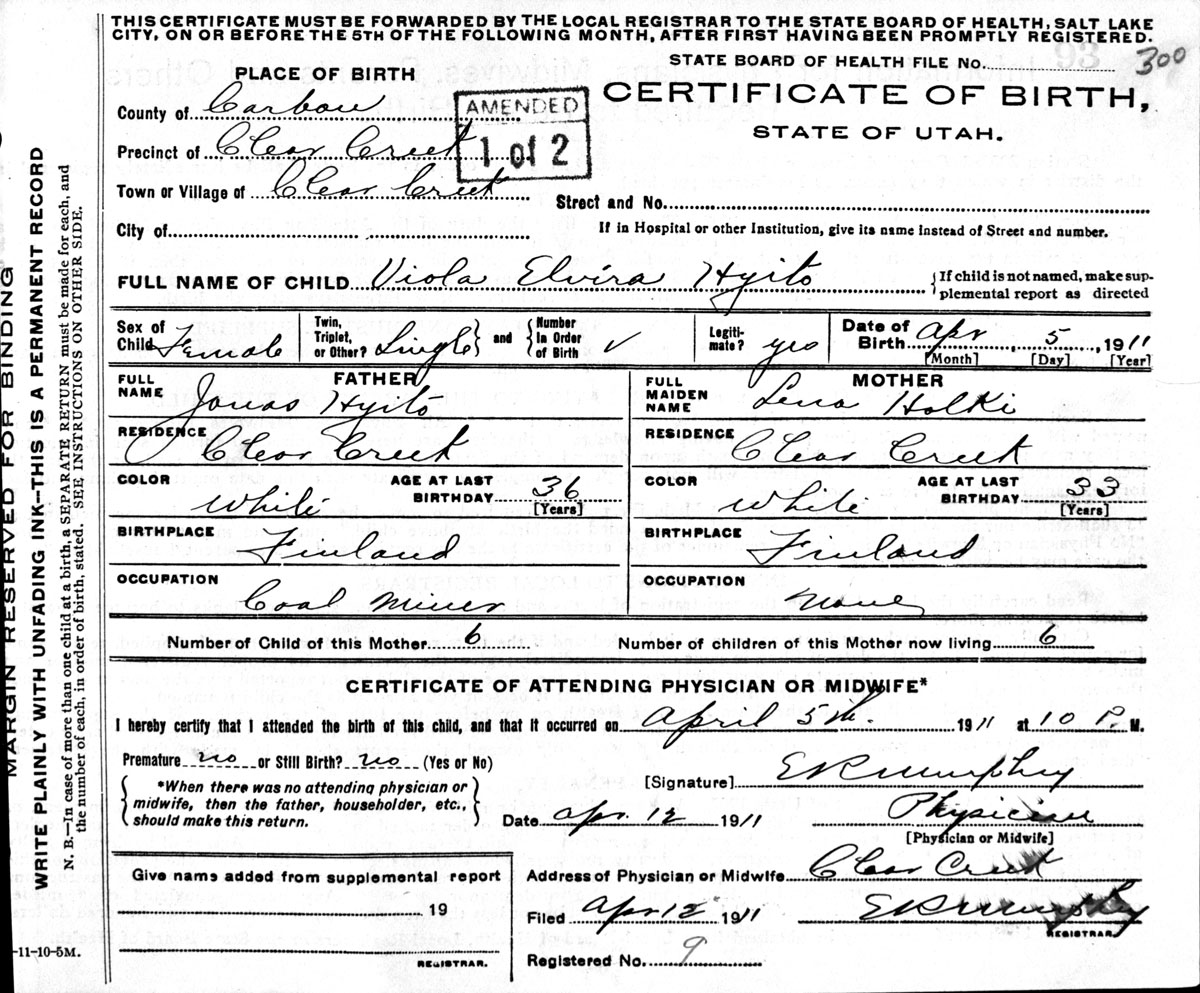 THIS CERTIFICATE MUST BE FORWARDED BY THE LOCAL REGISTRAR TO THE STATE BOARD OF HEALTH, SALT LAKE
CITY, ON OR BEFORE THE 5TH OF THE FOLLOWING MONTH, AFTER FIRST HAVING BEEN PROMPTLY REGISTERED.
STATE BOARD OF HEALTH FILE No. 300
CERTIFICATE OF BIRTH,
STATE OF UTAH.
PLACE OF BIRTH
County of Carbon
AMENDED
1 of 2
Precinct of Clear Creek
Town or Village of Clear Creek
Street and No.
City of
If in Hospital or other Institution, give its name instead of Street and number.
FULL NAME OF CHILD Viola Elvira Hyito
{If child is not named, make sup-
plemental report as directed
Sex of Child Female
Twin, Triplet, or Other? Single } and { Number In Order of Birth √
Legiti-mate? yes
Date of Birth Apr 5, 1911
[Month] [Day] [Year]
FATHER
FULL NAME Jonas Hyito
RESIDENCE Clear Creek
COLOR White AGE AT LAST BIRTHDAY 36 [Years]
BIRTHPLACE Finland
OCCUPATION Coal Miner
MOTHER
FULL MAIDEN NAME Lena Holki
RESIDENCE Clear Creek
COLOR White AGE AT LAST BIRTHDAY 33 [Years]
BIRTHPLACE Finland
OCCUPATION None
Number of Child of this Mother 6 Number of children of this Mother now living 6
CERTIFICATE OF ATTENDING PHYSICIAN OR MIDWIFE*
I hereby certify that I attended the birth of this child, and that it occurred on April 5th. 1911 at 10 P. M.
Premature no or Still Birth? no (Yes or No)
{*When there was no attending physician or
midwife, then the father, householder, etc.,
should make this return.}
[Signature] E R Murphey
Date Apr. 12 1911 Physician
[Physician or Midwife]
Address of Physician or Midwife Clear Creek
Filed Apr 12 1911 E R Murphey
REGISTRAR.
Registered No. 9
Give name added from supplemental report
19
REGISTRAR.
MARGIN RESERVED FOR BINDING
WRITE PLAINLY WITH UNFADING INK—THIS IS A PERMANENT RECORD
N. B.—In case of more than one child at a birth, a SEPARATE RETURN must be made for each, and
the number of each, in order of birth, stated. SEE INSTRUCTIONS ON OTHER SIDE.
-11-10-5M.